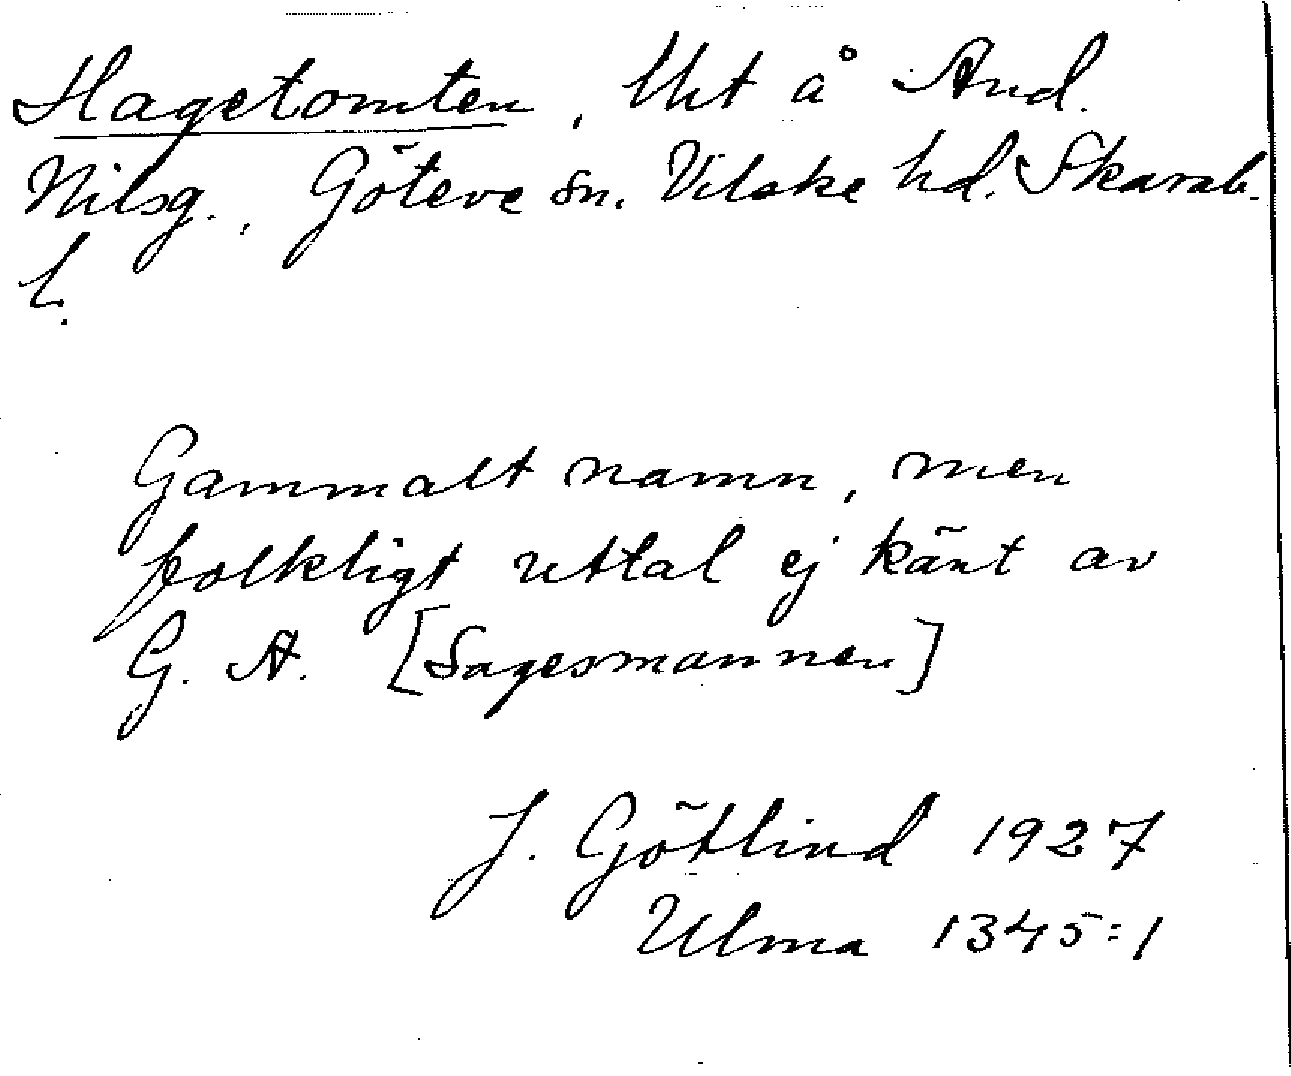 Hagetomten, lht å And.
Nilsg., Göteve sn. Vilske hd. Skarab.
l.
Gammalt namn, men
folkligt uttal ej känt av
G. A. [Sagesmannen]
J. Götlind 1927
Ulma 1345:1